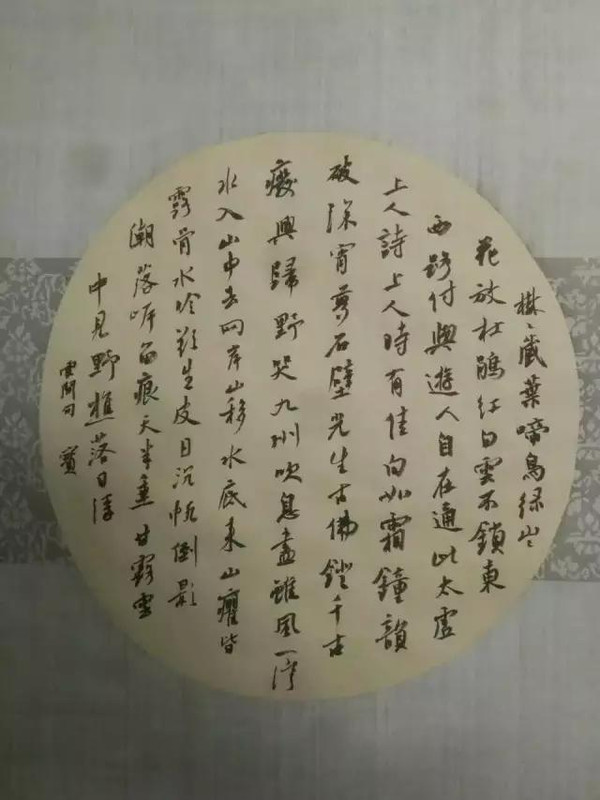 樹樹藏葉啼鳥綠山
花放杜鵑紅白雲不鎖東
西路付與遊人自在通此太虛
上人詩上人時有佳句如霜鐘韻
破深宵尊石壁光生古佛鐙千古
廢興歸野哭九州吹息盡雌風一
水入山中去兩岸山移水底來山癯皆
露骨水冷欲生皮日沉帆倒影
潮落岸留痕天半垂甘露雲
中見野樵落日
雲閒句 寶